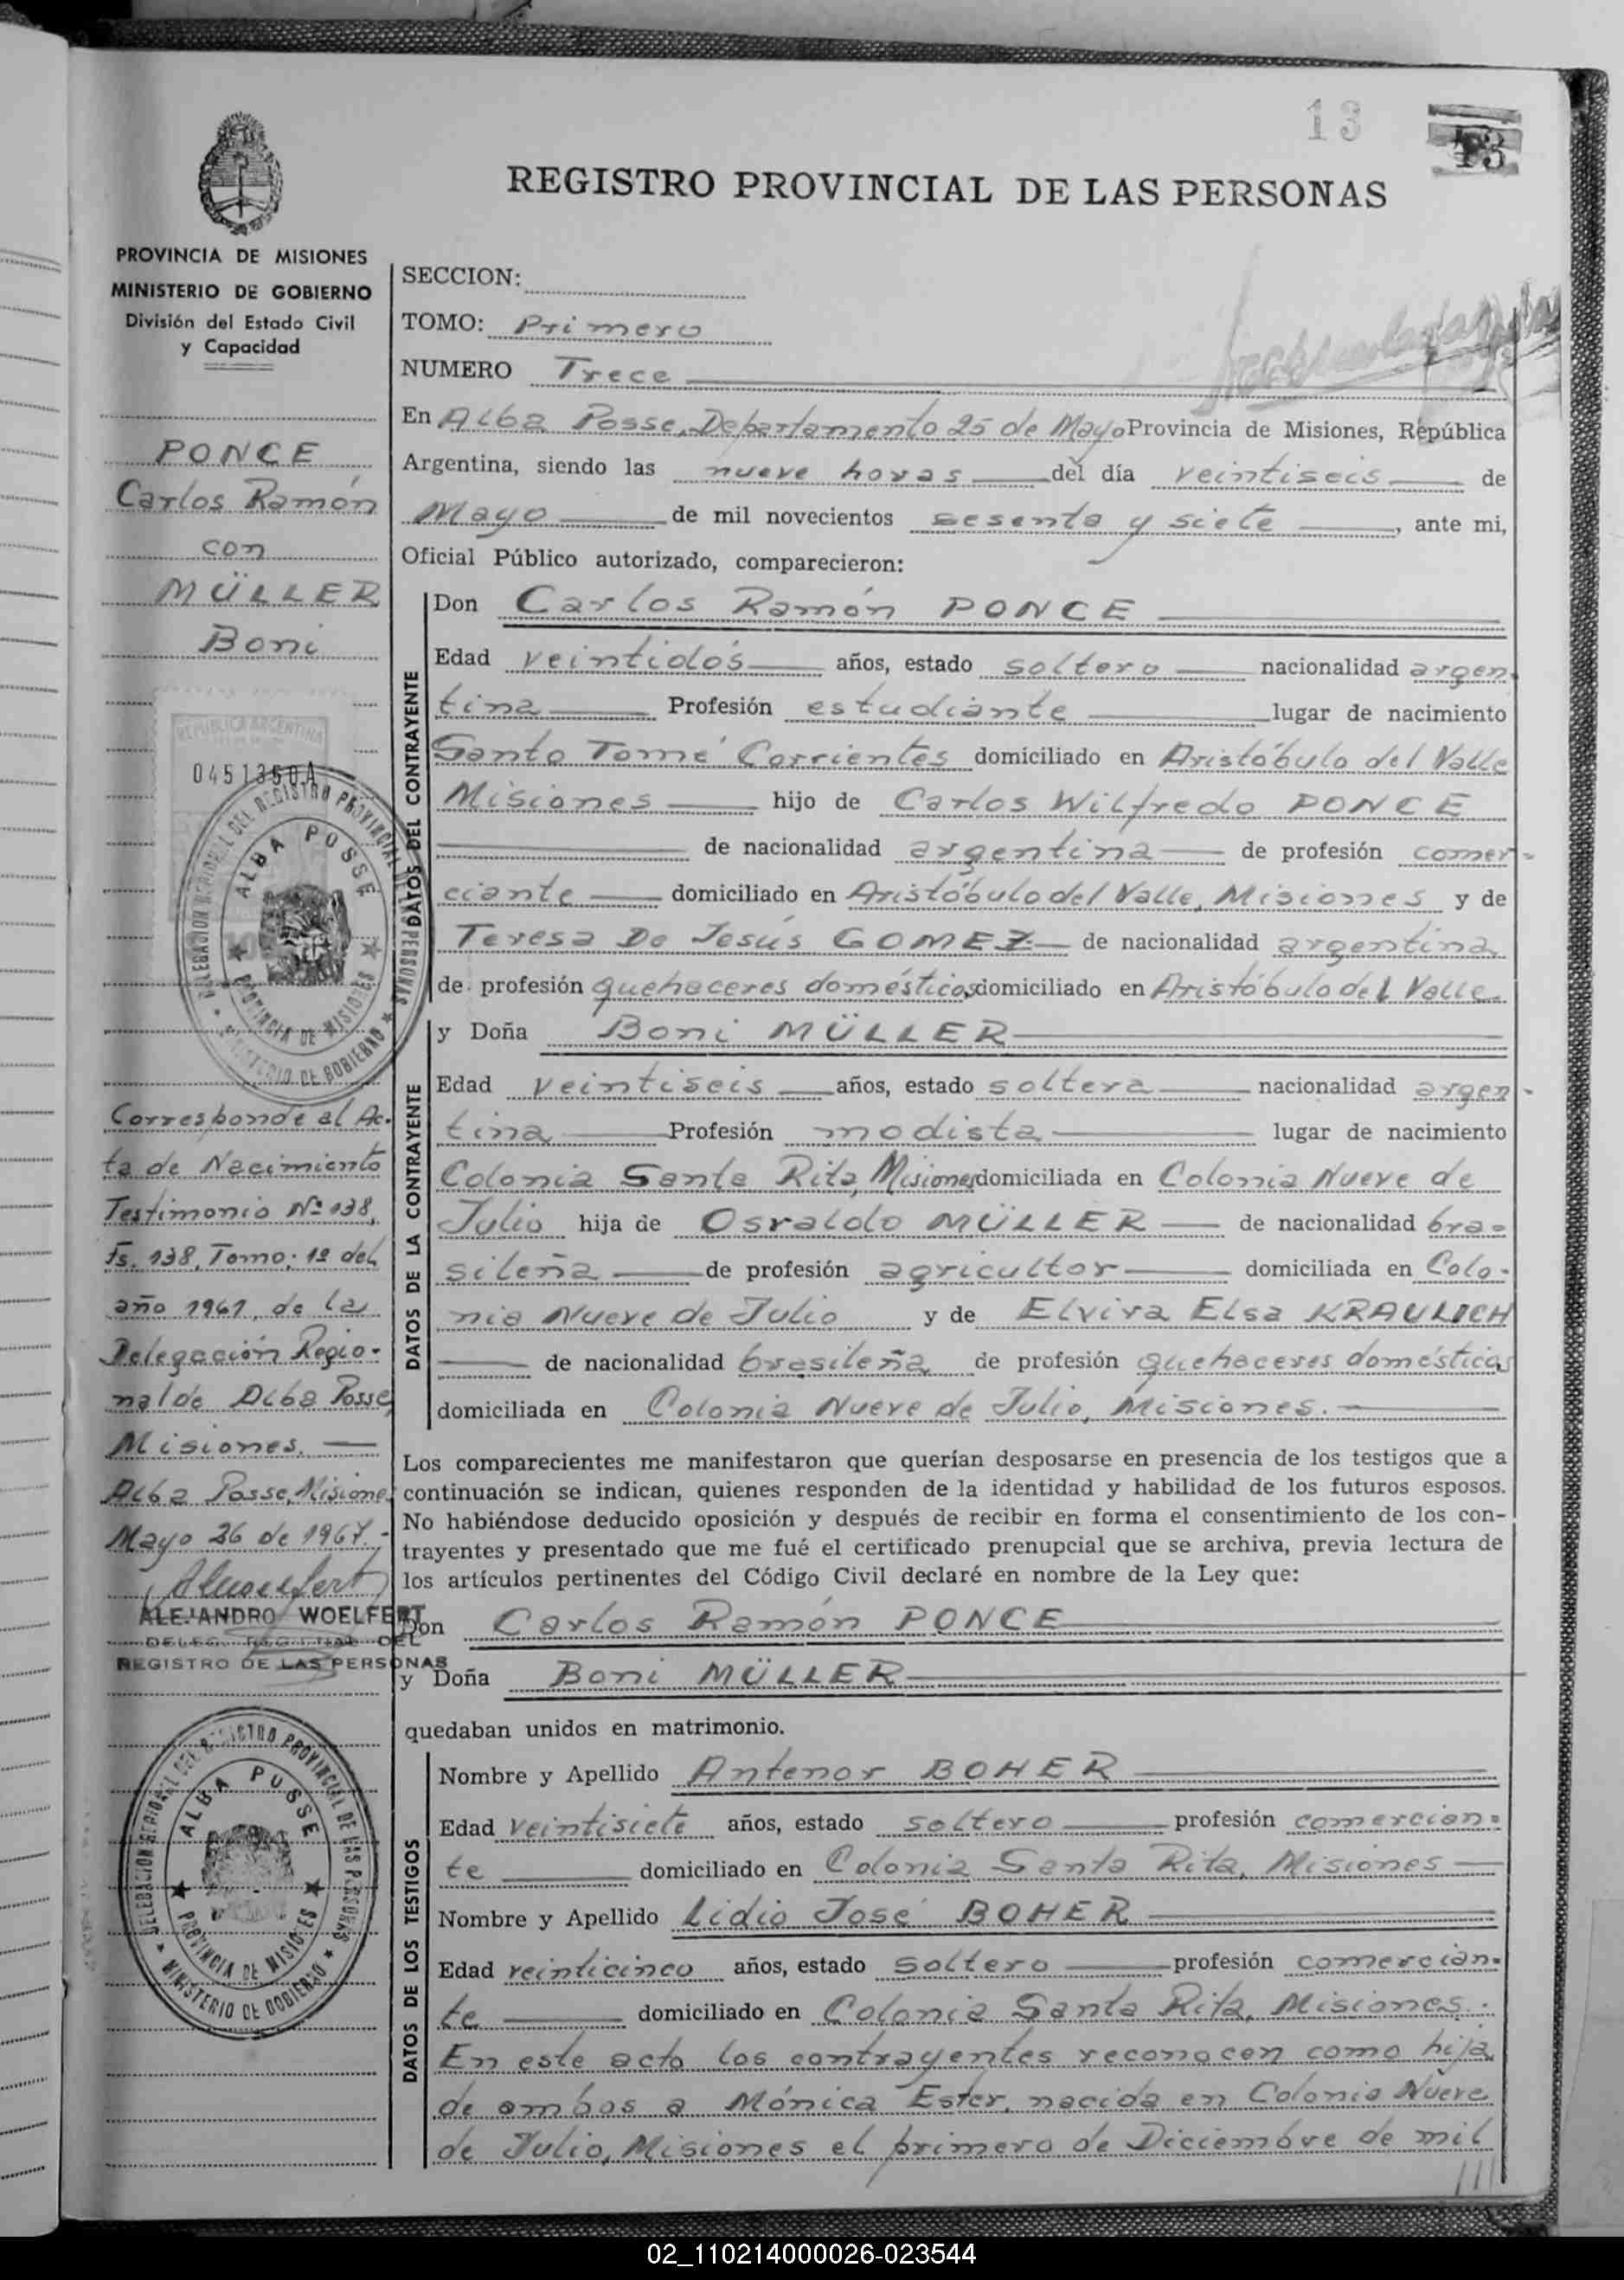 13
13
REGISTRO PROVINCIAL DE LAS PERSONAS
PROVINCIA DE MISIONES
MINISTERIO DE GOBIERNO
División del Estado Civil
y Capacidad
PONCE
Carlos Ramón
con
MÜLLER
Boni
REPUBLICA ARGENTINA
0451350A
DELEGACION REGIONAL DEL REGISTRO PROVINCIAL DE LAS PERSONAS
ALBA POSSE
PROVINCIA DE MISIONES
MINISTERIO DE GOBIERNO
Corresponde al Ac-
ta de Nacimiento
Testimonio Nº 138,
Fs. 138, Tomo: 1º del
año 1961, de la
Delegación Regio-
nal de Alba Posse,
Misiones.
Alba Posse, Misiones
Mayo 26 de 1967.-
ALEJANDRO WOELFERT
DELEG. REGIONAL DEL
REGISTRO DE LAS PERSONAS
DELEGACION REGIONAL DEL REGISTRO PROVINCIAL DE LAS PERSONAS
ALBA POSSE
PROVINCIA DE MISIONES
MINISTERIO DE GOBIERNO
SECCION:
TOMO: Primero
NUMERO Trece
En Alba Posse, Departamento 25 de Mayo Provincia de Misiones, República
Argentina, siendo las nueve horas del día veintiseis de
Mayo de mil novecientos sesenta y siete, ante mi,
Oficial Público autorizado, comparecieron:
DATOS DEL CONTRAYENTE
Don Carlos Ramón PONCE
Edad veintidós años, estado soltero nacionalidad argen-
tina Profesión estudiante lugar de nacimiento
Santo Tomé Corrientes domiciliado en Aristóbulo del Valle
Misiones hijo de Carlos Wilfredo PONCE
de nacionalidad argentina de profesión comer-
ciante domiciliado en Aristóbulo del Valle, Misiones y de
Teresa De Jesús GOMEZ de nacionalidad argentina
de profesión quehaceres domésticos domiciliado en Aristóbulo del Valle
DATOS DE LA CONTRAYENTE
y Doña Boni MÜLLER
Edad veintiseis años, estado soltera nacionalidad argen-
tina Profesión modista lugar de nacimiento
Colonia Santa Rita, Misiones domiciliada en Colonia Nueve de
Julio hija de Osvaldo MÜLLER de nacionalidad bra-
sileña de profesión agricultor domiciliada en Colo-
nia Nueve de Julio y de Elvira Elsa KRAULICH
de nacionalidad brasileña de profesión quehaceres domésticos
domiciliada en Colonia Nueve de Julio, Misiones.
Los comparecientes me manifestaron que querían desposarse en presencia de los testigos que a
continuación se indican, quienes responden de la identidad y habilidad de los futuros esposos.
No habiéndose deducido oposición y después de recibir en forma el consentimiento de los con-
trayentes y presentado que me fué el certificado prenupcial que se archiva, previa lectura de
los artículos pertinentes del Código Civil declaré en nombre de la Ley que:
Don Carlos Ramón PONCE
y Doña Boni MÜLLER
quedaban unidos en matrimonio.
DATOS DE LOS TESTIGOS
Nombre y Apellido Antenor BOHER
Edad veintisiete años, estado soltero profesión comercian-
te domiciliado en Colonia Santa Rita, Misiones
Nombre y Apellido Lidio José BOHER
Edad veinticinco años, estado soltero profesión comercian-
te domiciliado en Colonia Santa Rita, Misiones.
En este acto los contrayentes reconocen como hija
de ambos a Mónica Ester, nacida en Colonia Nueve
de Julio, Misiones el primero de Diciembre de mil
///
02_110214000026-023544